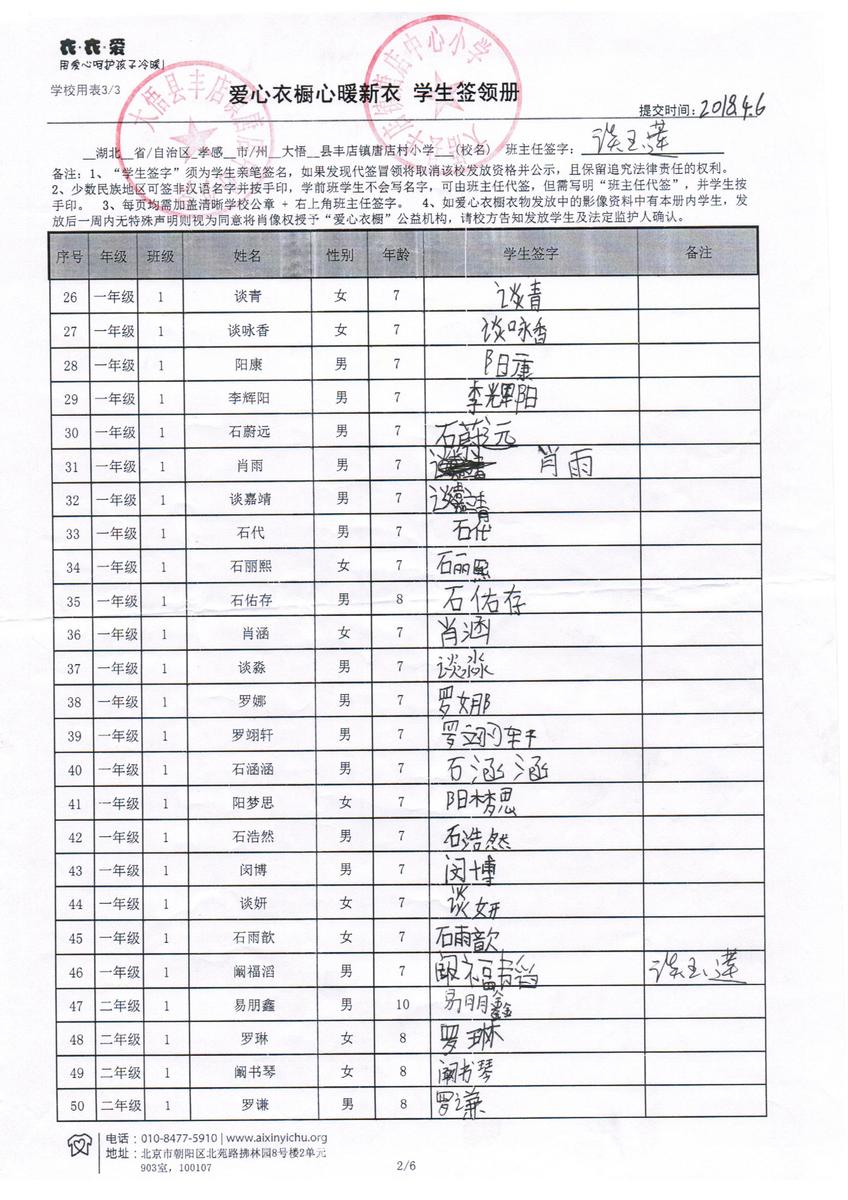 衣·衣·爱
用爱心呵护孩子冷暖!
学校用表3/3
爱心衣橱心暖新衣 学生签领册
提交时间: 2018.4.6
__湖北__省/自治区_孝感__市/州 __大悟__县丰店镇唐店村小学___(校名) 班主任签字:
备注: 1、“学生签字”须为学生亲笔签名,如果发现代签冒领将取消该校发放资格并公示,且保留追究法律责任的权利。
2、少数民族地区可签非汉语名字并按手印,学前班学生不会写名字,可由班主任代签,但需写明“班主任代签”,并学生按
手印。 3、每页均需加盖清晰学校公章 + 右上角班主任签字。 4、如爱心衣橱衣物发放中的影像资料中有本册内学生,发
放后一周内无特殊声明则视为同意将肖像权授予“爱心衣橱”公益机构,请校方告知发放学生及法定监护人确认。
序号 年级 班级 姓名 性别 年龄 学生签字 备注
26 一年级 1 谈青 女 7 谈青
27 一年级 1 谈咏香 女 7 谈咏香
28 一年级 1 阳康 男 7 阳康
29 一年级 1 李辉阳 男 7 李辉阳
30 一年级 1 石蔚远 男 7 石蔚远
31 一年级 1 肖雨 男 7 肖雨
32 一年级 1 谈嘉靖 男 7 谈嘉靖
33 一年级 1 石代 男 7 石代
34 一年级 1 石丽熙 女 7 石丽熙
35 一年级 1 石佑存 男 8 石佑存
36 一年级 1 肖涵 女 7 肖涵
37 一年级 1 谈淼 男 7 谈淼
38 一年级 1 罗娜 男 7 罗娜
39 一年级 1 罗翊轩 男 7 罗翊轩
40 一年级 1 石涵涵 男 7 石涵涵
41 一年级 1 阳梦思 女 7 阳梦思
42 一年级 1 石浩然 男 7 石浩然
43 一年级 1 闵博 男 7 闵博
44 一年级 1 谈妍 女 7 谈妍
45 一年级 1 石雨歆 女 7 石雨歆
46 一年级 1 阚福滔 男 7 阚福滔
47 二年级 1 易朋鑫 男 10 易朋鑫
48 二年级 1 罗琳 女 8 罗琳
49 二年级 1 阚书琴 女 8 阚书琴
50 二年级 1 罗谦 男 8 罗谦
电话: 010-8477-5910 | www.aixinyichu.org
地址: 北京市朝阳区北苑路拂林园8号楼2单元
903室, 100107
2/6